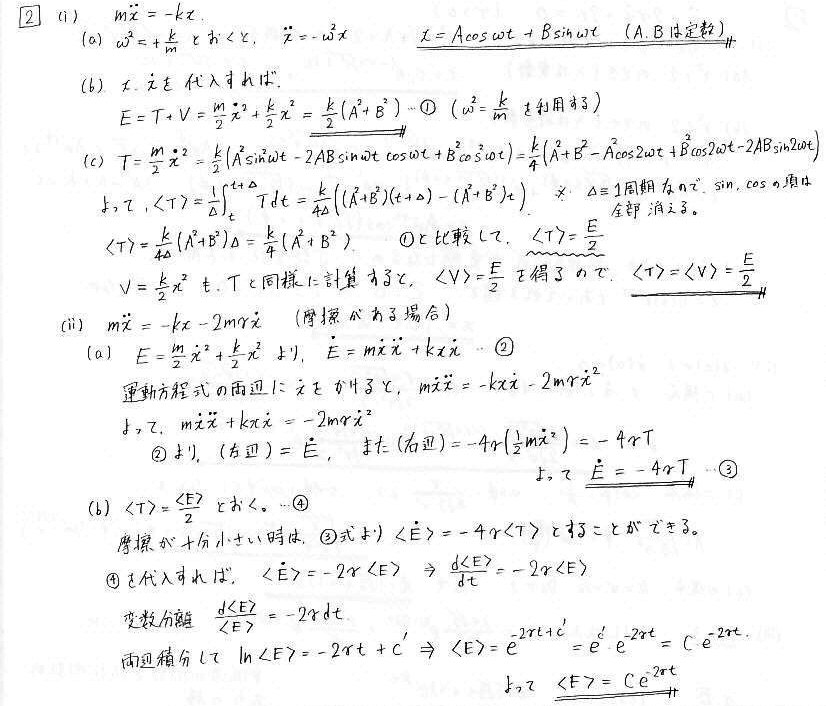 2 (i) mẍ = -kx.
(a) ω² = +k/m とおくと、 ẍ = -ω²x x = A cos ωt + B sin ωt (A.Bは定数)
(b) x, ẋを代入すれば、
E = T + V = m/2 ẋ² + k/2 x² = k/2 (A² + B²) …① (ω² = k/m を利用する)
(c) T = m/2 ẋ² = k/2 (A² sin² ωt - 2AB sin ωt cos ωt + B² cos² ωt) = k/4 (A² + B² - A² cos 2ωt + B² cos 2ωt - 2AB sin 2ωt)
よって、〈T〉 = 1/Δ ∫_t^{t+Δ} T dt = k/4Δ ((A² + B²)(t + Δ) - (A² + B²)t) ※ Δ ≡ 1周期なので、sin, cosの項は
全部消える。
〈T〉 = k/4Δ (A² + B²)Δ = k/4 (A² + B²) ①と比較して、〈T〉 = E/2
V = k/2 x² も、Tと同様に計算すると、〈V〉 = E/2 を得るので、〈T〉 = 〈V〉 = E/2
(ii) mẍ = -kx - 2mγẋ (摩擦がある場合)
(a) E = m/2 ẋ² + k/2 x² より、Ė = mẋẍ + kxẋ …②
運動方程式の両辺にẋをかけると、mẋẍ = -kxẋ - 2mγẋ²
よって、mẋẍ + kxẋ = -2mγẋ²
②より、(左辺) = Ė, また(右辺) = -4γ(1/2 mẋ²) = -4γT
よって Ė = -4γT …③
(b) 〈T〉 = 〈E〉/2 とおく。…④
摩擦が十分小さい時は、③式より〈Ė〉 = -4γ〈T〉とすることができる。
④を代入すれば、〈Ė〉 = -2γ〈E〉 ⇒ d〈E〉/dt = -2γ〈E〉
変数分離 d〈E〉/〈E〉 = -2γdt.
両辺積分して ln〈E〉 = -2γt + C' ⇒ 〈E〉 = e^{-2γt+C'} = e^{C'}・e^{-2γt} = C・e^{-2γt}.
よって 〈E〉 = Ce^{-2γt}